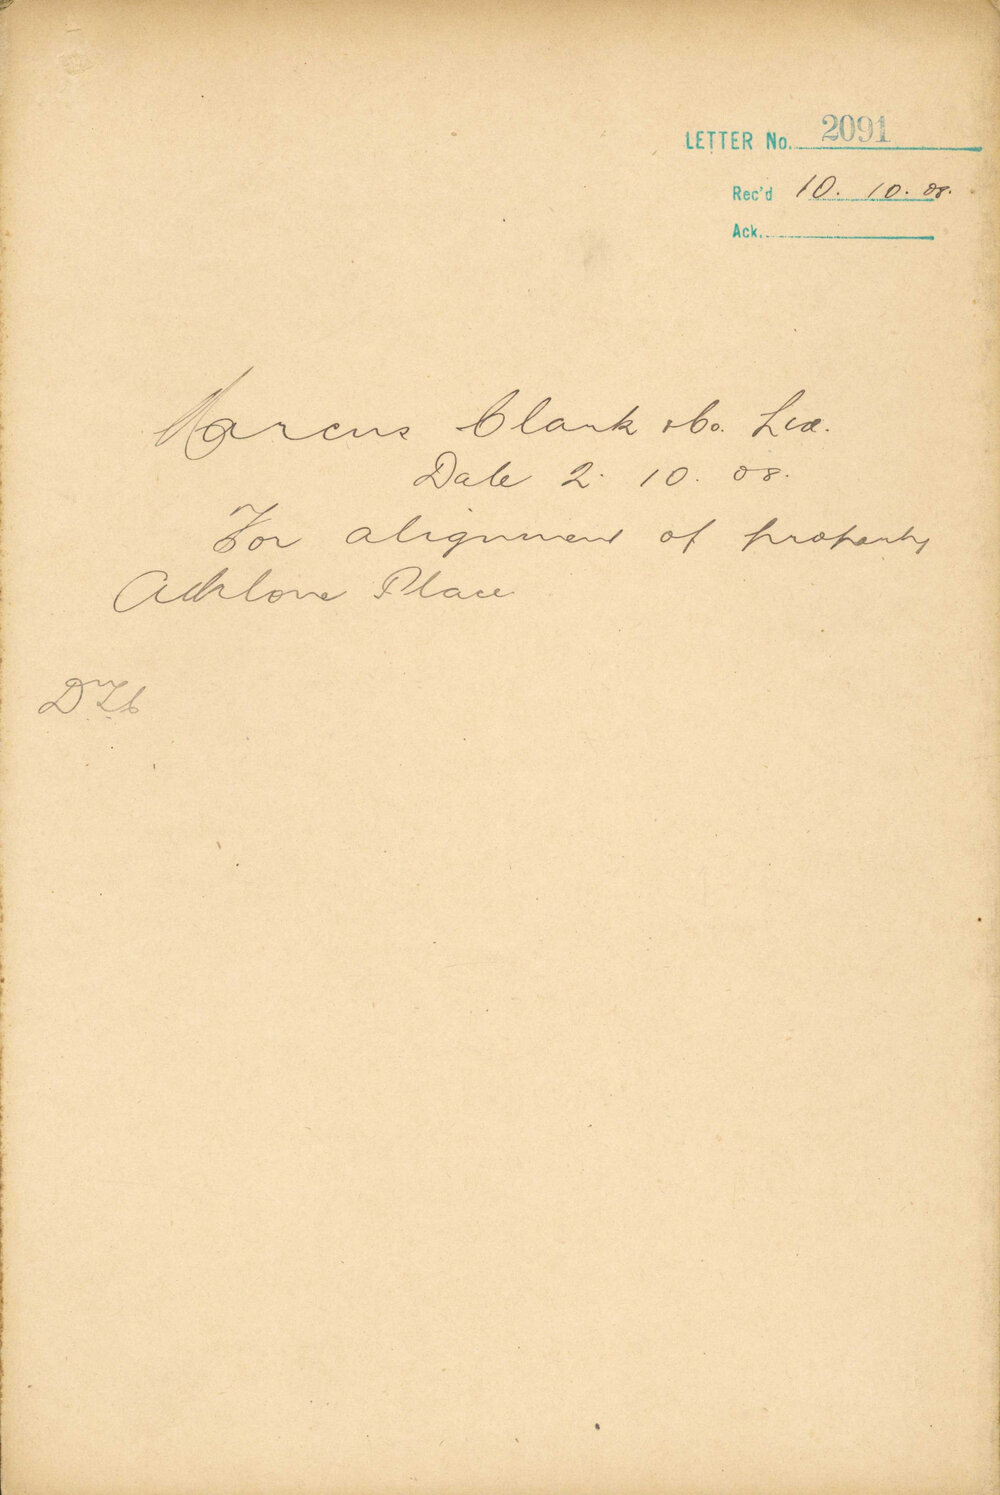 LETTER No. 2091
Rec'd 10. 10. 08.
Ack.
Marcus Clark & Co. Ltd.
Date 2. 10. 08.
For alignment of property
Athlone Place